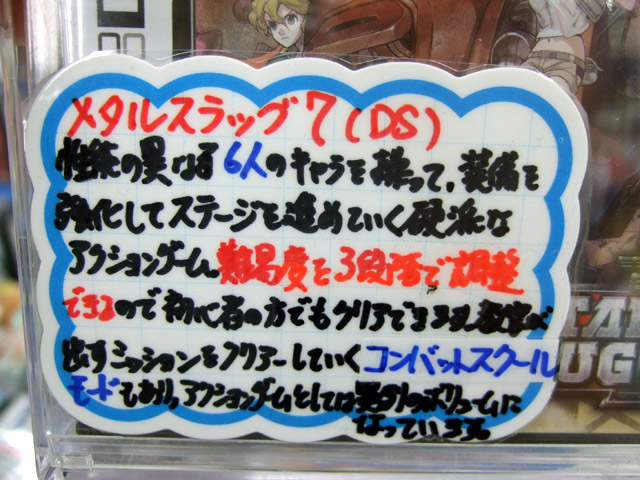 メタルスラッグ7(DS)
性能の異なる6人のキャラを操って、装備を
強化してステージを進めていく硬派な
アクションゲーム。難易度を3段階で調整
できるので初心者の方でもクリアできます。教官が
出すミッションをクリアーしていくコンバットスクール
モードもあり、アクションゲームとしては異例のボリュームに
なっています。
TA
UG